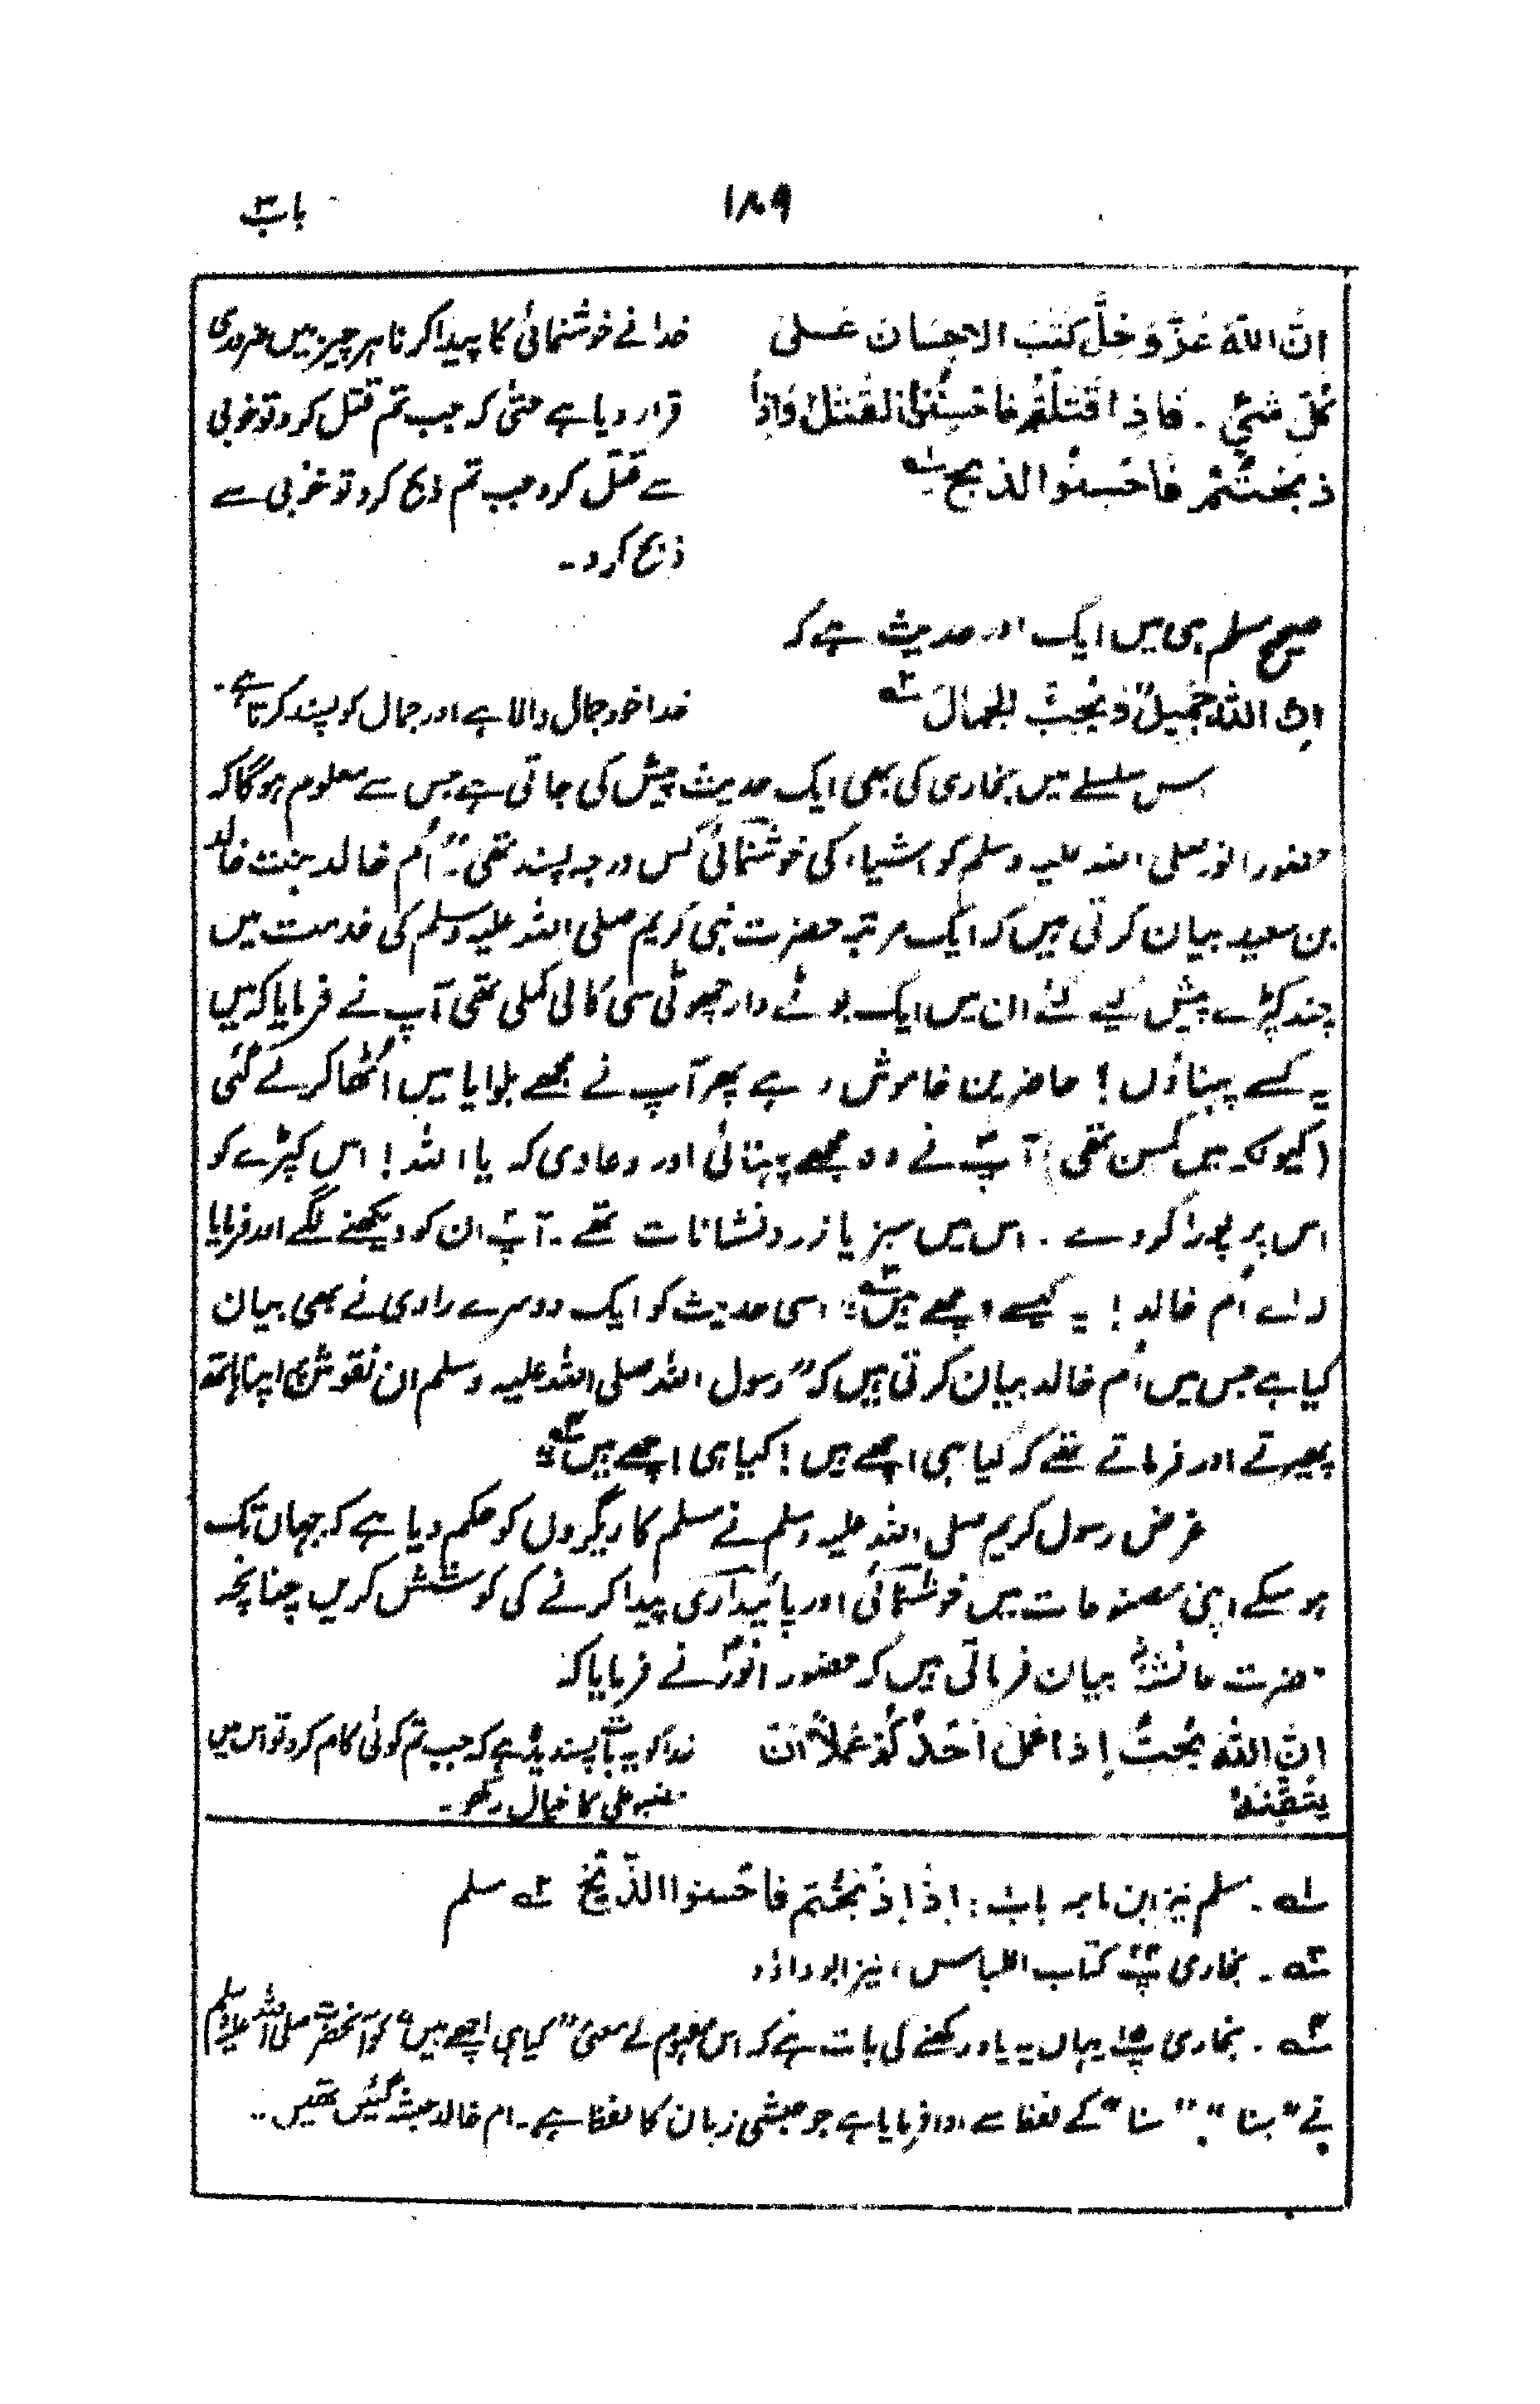 باب ۳
۱۸۹
اِنَّ اللّٰهَ عَزَّ وَجَلَّ كَتَبَ الاحِسَانَ عَلىٰ
كُلِّ شَیْءٍ ۔ فَاِذَا قَتَلْتُمْ فَاحْسِنُوْا الْقَتَلَ وَاِذَا
ذَبَحْتُمْ فَاحْسِنُوا الذبح لہ
خدا نے خوشنمائی کا پیدا کرنا ہر چیز میں ضروری
قرار دیا ہے حتیٰ کہ جب تم قتل کرو تو خوبی
سے قتل کرو جب تم ذبح کرو تو خوبی سے
ذبح کرو ۔
صحیح مسلم ہی میں ایک اور حدیث ہے کہ
اِنَّ اللّٰهَ جَمِیْلٌ وَیُحِبُّ الجَمَالَ ۲ہ
خدا خود جمال والا ہے اور جمال کو پسند کرتا ہے ۔
اس سلسلے میں بخاری کی بھی ایک حدیث پیش کی جاتی ہے جس سے معلوم ہوگا کہ
حضور انور صلی اللہ علیہ وسلم کو اشیاء کی خوشنمائی کس درجہ پسند تھی ۔ "اُم خالد بنت خالد
بن سعید بیان کرتی ہیں کہ ایک مرتبہ حضرت نبی کریم صلی اللہ علیہ وسلم کی خدمت میں
چند کپڑے پیش کیے گئے ان میں ایک بوٹے دار چھوٹی سی کالی کملی تھی آپ نے فرمایا کہ میں
یہ کسے پہناؤں ! حاضرین خاموش رہے پھر آپ نے مجھے بلوایا میں اُٹھا کر لے گئی
(کیونکہ میں کمسن تھی) آپؐ نے وہ مجھے پہنائی اور دعا دی کہ یا اللہ ! اس کپڑے کو
اس پر پورا کر دے ۔ اس میں سبز یا زرد نشانات تھے ۔ آپؐ ان کو دیکھنے لگے اور فرمایا
اے اُم خالد ! یہ کیسے اچھے ہیں ۳ہ" اسی حدیث کو ایک دوسرے راوی نے بھی بیان
کیا ہے جس میں اُم خالد بیان کرتی ہیں کہ "رسول اللہ صلی اللہ علیہ وسلم ان نقوش پر اپنا ہاتھ
پھیرتے اور فرماتے تھے کہ کیا ہی اچھے ہیں ! کیا ہی اچھے ہیں ۴ہ"
غرض رسول کریم صلی اللہ علیہ وسلم نے مسلم کاریگروں کو حکم دیا ہے کہ جہاں تک
ہو سکے اپنی مصنوعات میں خوشنمائی اور پائیداری پیدا کرنے کی کوشش کریں چنانچہ
حضرت عائشہؓ بیان فرماتی ہیں کہ حضور انورؐ نے فرمایا کہ
اِنَّ اللّٰهَ یُحِبُّ اِذَا عَمِلَ اَحَدُ کُمْ عَمَلاً اَنْ
یُتْقِنَهٗ
خدا کو یہ بات پسندیدہ ہے کہ جب تم کوئی کام کرو تو اس میں
مضبوطی کا خیال رکھو ۔
لہ ۔ مسلم نیز ابن ماجہ باب : اِذَا ذَبَحْتم فاحْسنوا الذَّبْحَ ۲ہ مسلم
۳ہ ۔ بخاری پ۲۴ کتاب اللباس ، نیز ابوداؤد
۴ہ ۔ بخاری یہاں یہ یاد رکھنے کی بات ہے کہ اس مفہوم کے معنی "کیا ہی اچھے ہیں" کو آنحضرت صلی اللہ علیہ وسلم
نے "سنا" "سنا" کے لفظ سے ادا فرمایا ہے جو حبشی زبان کا لفظ ہے ۔ ام خالد حبشہ گئیں تھیں ۔